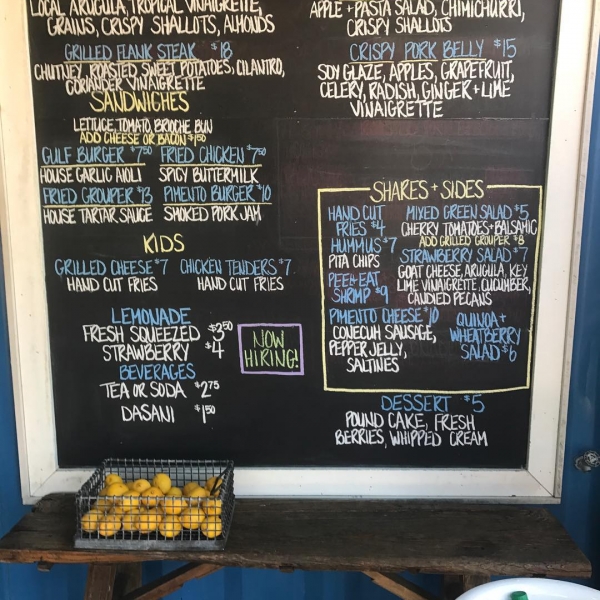 LOCAL ARUGULA, TROPICAL VINAIGRETTE,
GRAINS, CRISPY SHALLOTS, ALMONDS
GRILLED FLANK STEAK $18
CHUTNEY, ROASTED SWEET POTATOES, CILANTRO,
CORIANDER VINAIGRETTE
APPLE + PASTA SALAD, CHIMICHURRI,
CRISPY SHALLOTS
CRISPY PORK BELLY $15
SOY GLAZE, APPLES, GRAPEFRUIT,
CELERY, RADISH, GINGER + LIME
VINAIGRETTE
SANDWICHES
LETTUCE, TOMATO, BRIOCHE BUN
ADD CHEESE OR BACON $1.50
GULF BURGER $7.50 FRIED CHICKEN $7.50
HOUSE GARLIC AIOLI SPICY BUTTERMILK
FRIED GROUPER $13 PIMENTO BURGER $10
HOUSE TARTAR SAUCE SMOKED PORK JAM
KIDS
GRILLED CHEESE $7 CHICKEN TENDERS $7
HAND CUT FRIES HAND CUT FRIES
LEMONADE
FRESH SQUEEZED $3.50
STRAWBERRY $4
BEVERAGES
TEA OR SODA $2.75
DASANI $1.50
NOW
HIRING!
SHARES + SIDES
HAND CUT
FRIES $4
HUMMUS $7
PITA CHIPS
PEEL + EAT
SHRIMP $9
PIMENTO CHEESE $10
CONECUH SAUSAGE,
PEPPER JELLY,
SALTINES
MIXED GREEN SALAD $5
CHERRY TOMATOES + BALSAMIC
ADD GRILLED GROUPER $8
STRAWBERRY SALAD $7
GOAT CHEESE, ARUGULA, KEY
LIME VINAIGRETTE, CUCUMBER,
CANDIED PECANS
QUINOA +
WHEATBERRY
SALAD $6
DESSERT $5
POUND CAKE, FRESH
BERRIES, WHIPPED CREAM